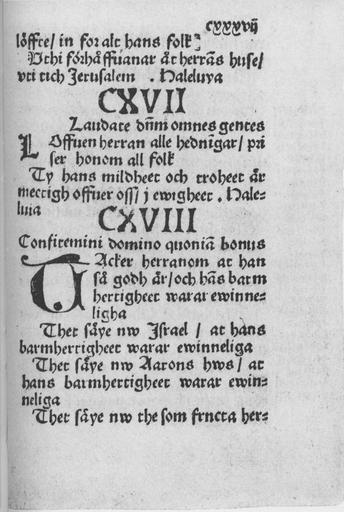 cxxxvij
löffte/ in for alt hans folk
Vthi förhåffuanar åt herrans huse/
vti tich Jerusalem . Haleluya
CXVII
Laudate dn̄m omnes gentes
LOffuen herran alle hedningar/ pri
ser honom all folk
Ty hans mildheet och troheet är
mectigh offuer oss/ j ewigheet . Hale-
luia
CXVIII
Confitemini domino quoniā bonus
TAcker herranom at han
så godh är/ och hās barm
hertigheet warar ewinne-
ligha
Thet säye nw Israel / at hans
barmhertigheet warar ewinneliga
Thet säye nw Aarons hws / at
hans barmhertigheet warar ewin-
neliga
Thet säye nw the som frncta her-